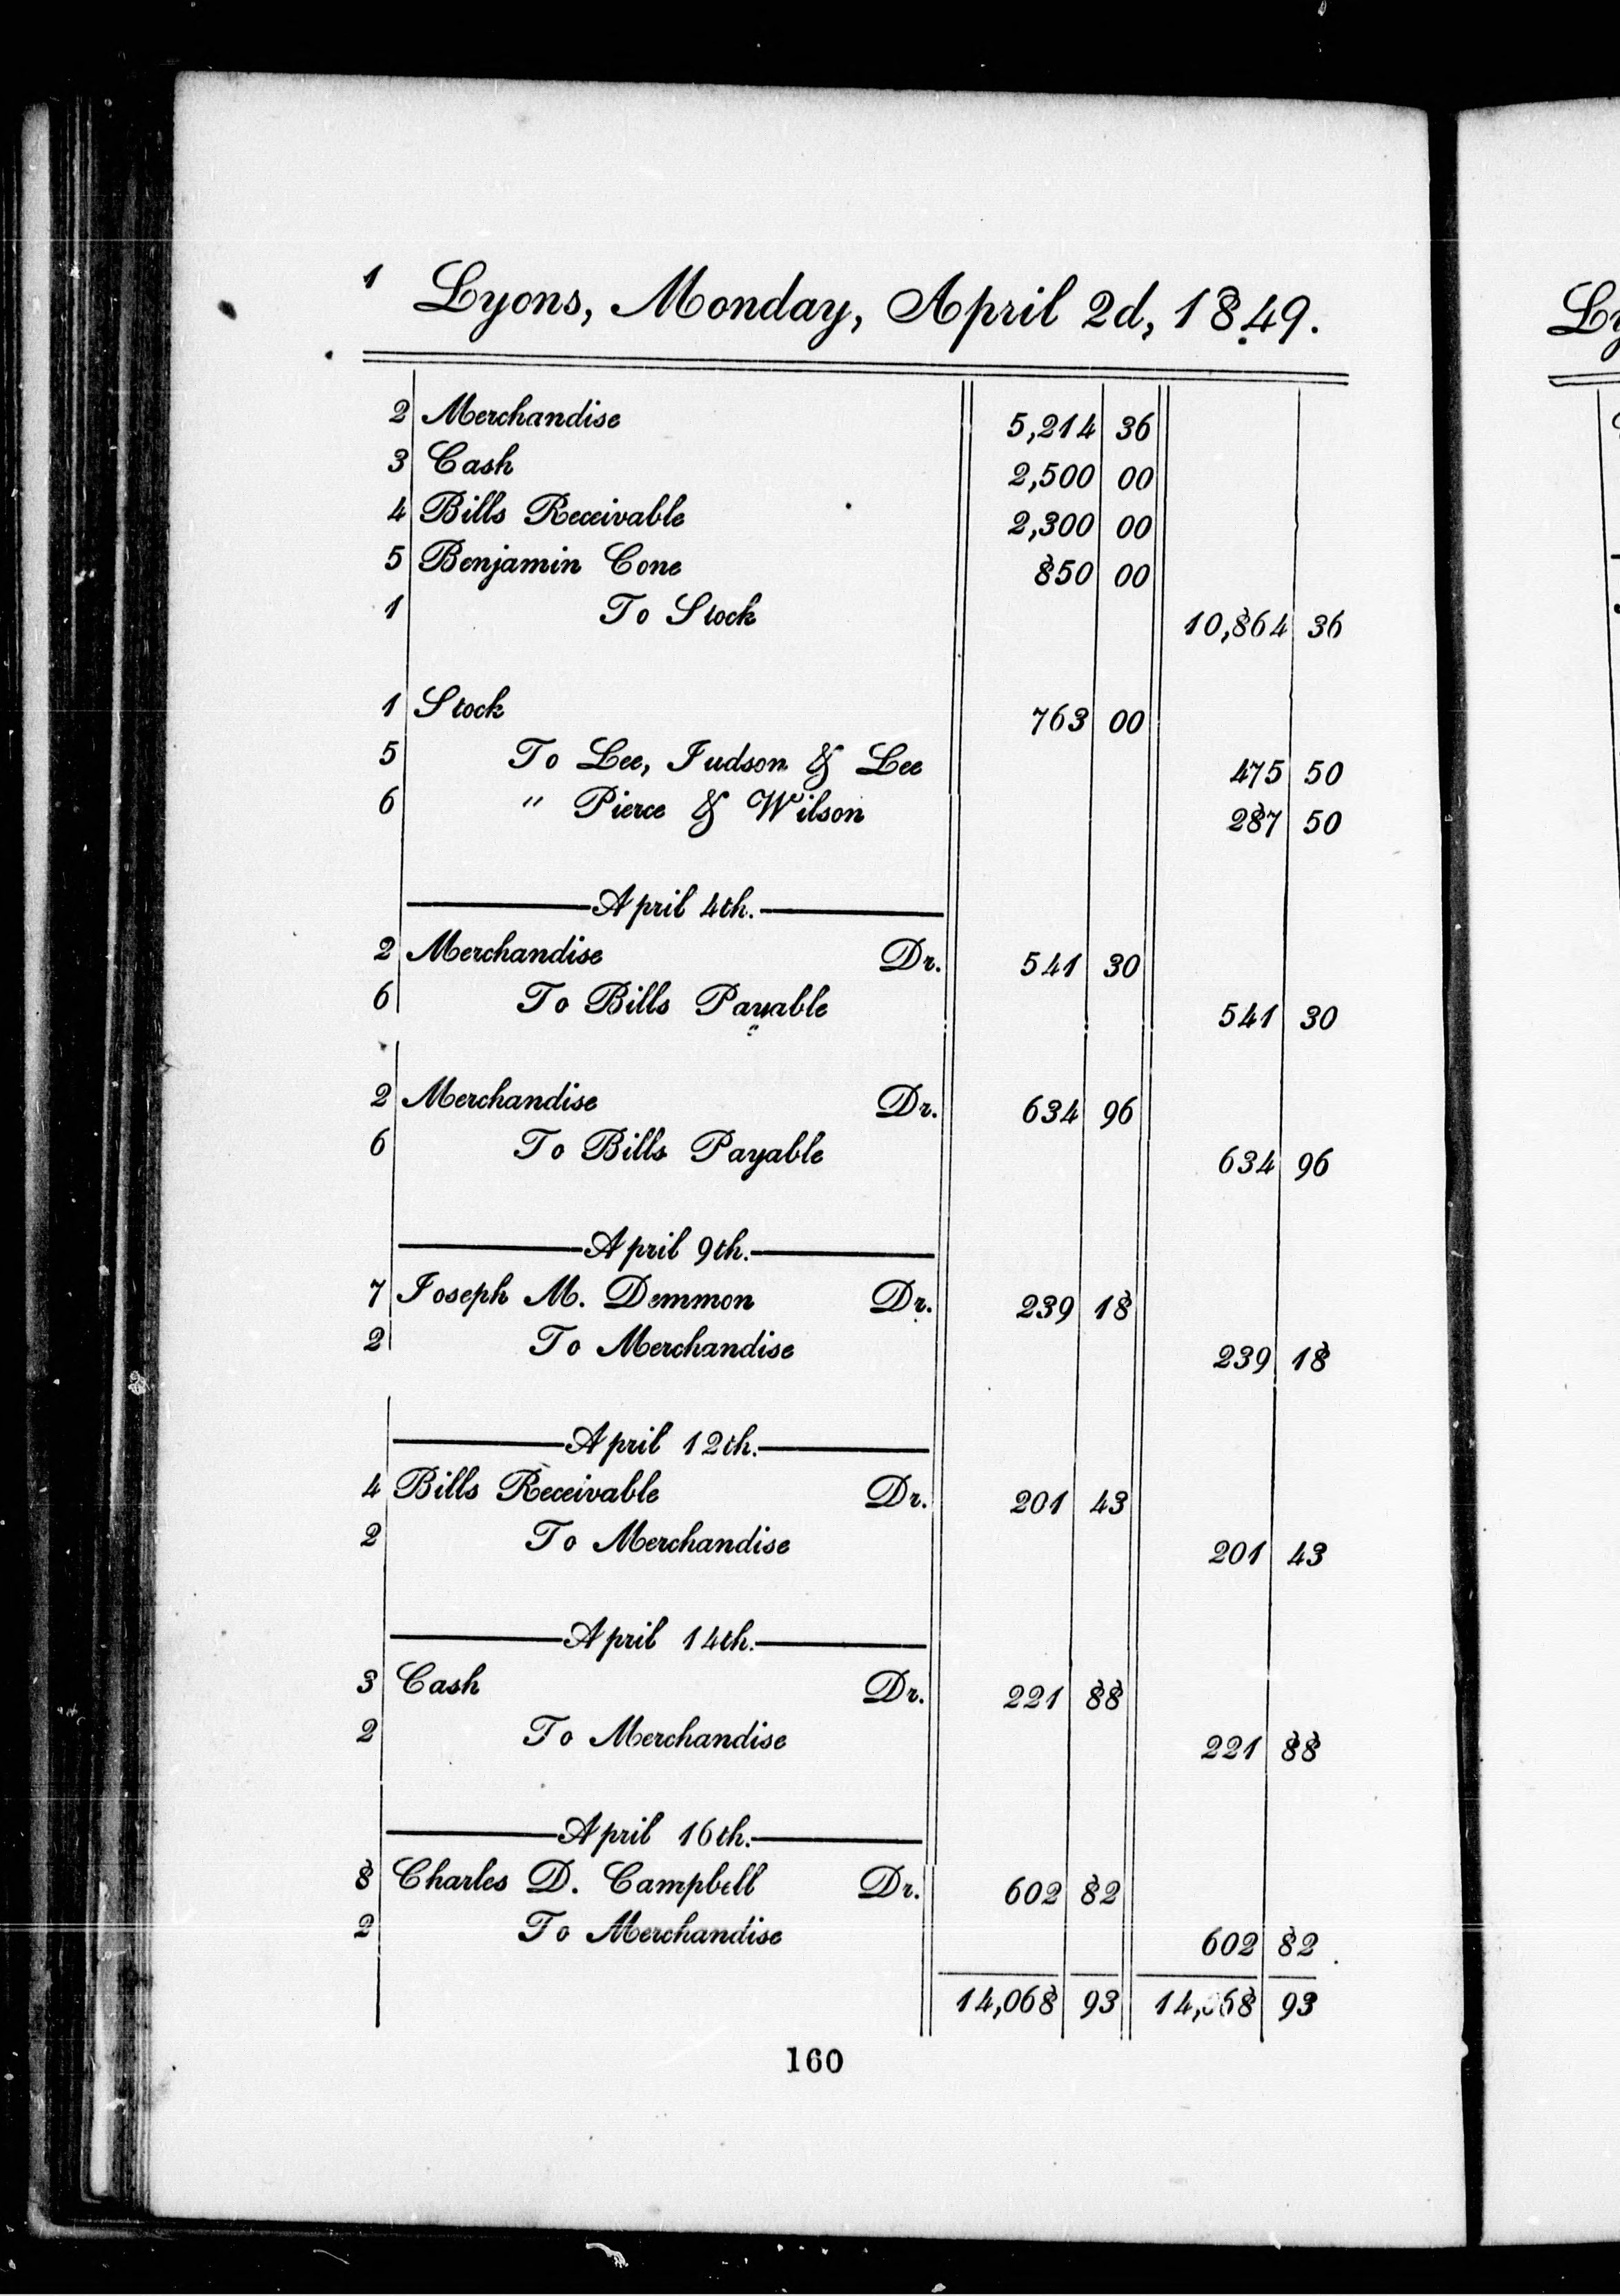 1 Lyons, Monday, April 2d, 1849.
2 Merchandise 5,214 36
3 Cash 2,500 00
4 Bills Receivable 2,300 00
5 Benjamin Cone 850 00
1 To Stock 10,864 36
1 Stock 763 00
5 To Lee, Judson & Lee 475 50
6 " Pierce & Wilson 287 50
April 4th.
2 Merchandise Dr. 541 30
6 To Bills Payable 541 30
2 Merchandise Dr. 634 96
6 To Bills Payable 634 96
April 9th.
7 Joseph M. Demmon Dr. 239 18
2 To Merchandise 239 18
April 12th.
4 Bills Receivable Dr. 201 43
2 To Merchandise 201 43
April 14th.
3 Cash Dr. 221 88
2 To Merchandise 221 88
April 16th.
8 Charles D. Campbell Dr. 602 82
2 To Merchandise 602 82
14,068 93 14,068 93
160